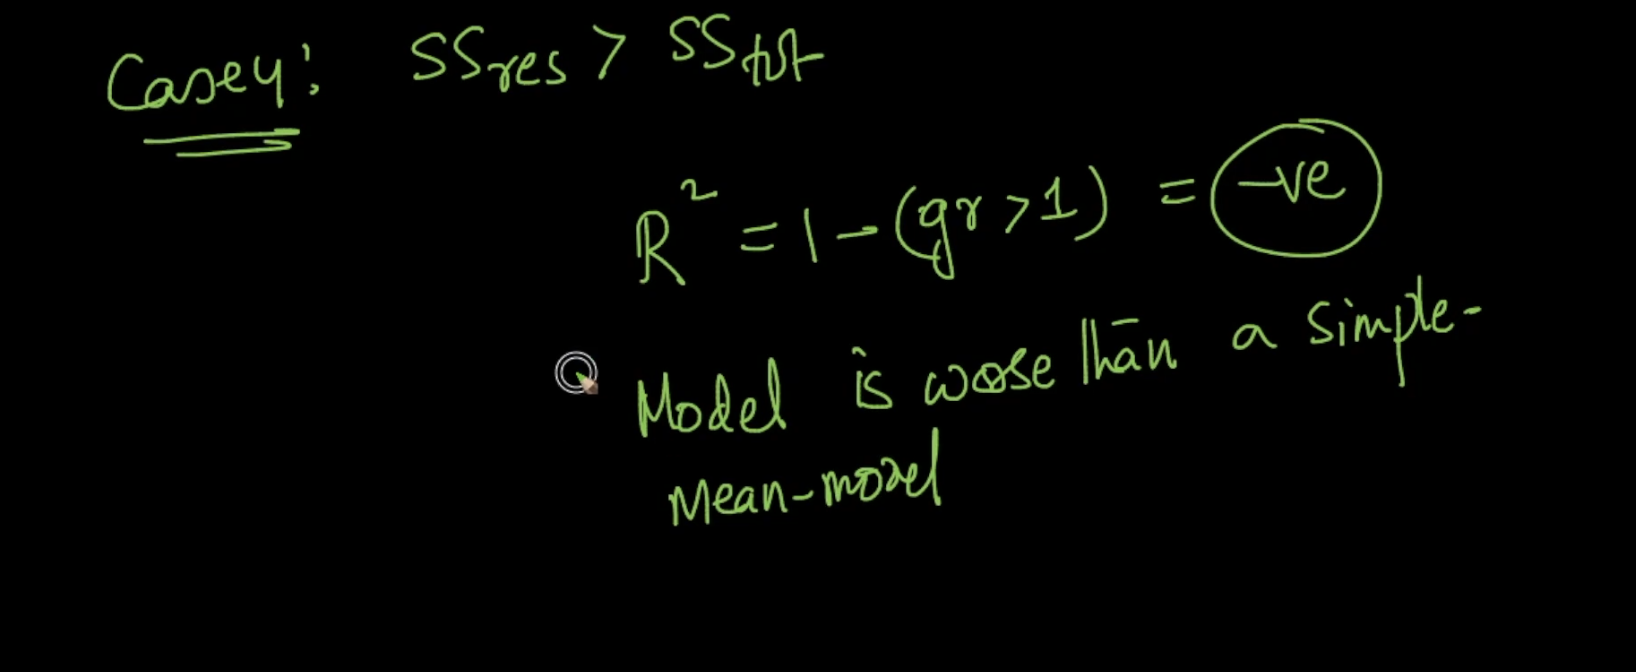 Case4: SSres > SStot
R² = 1 - (gr > 1) = -ve
Model is wose than a simple-
mean-model